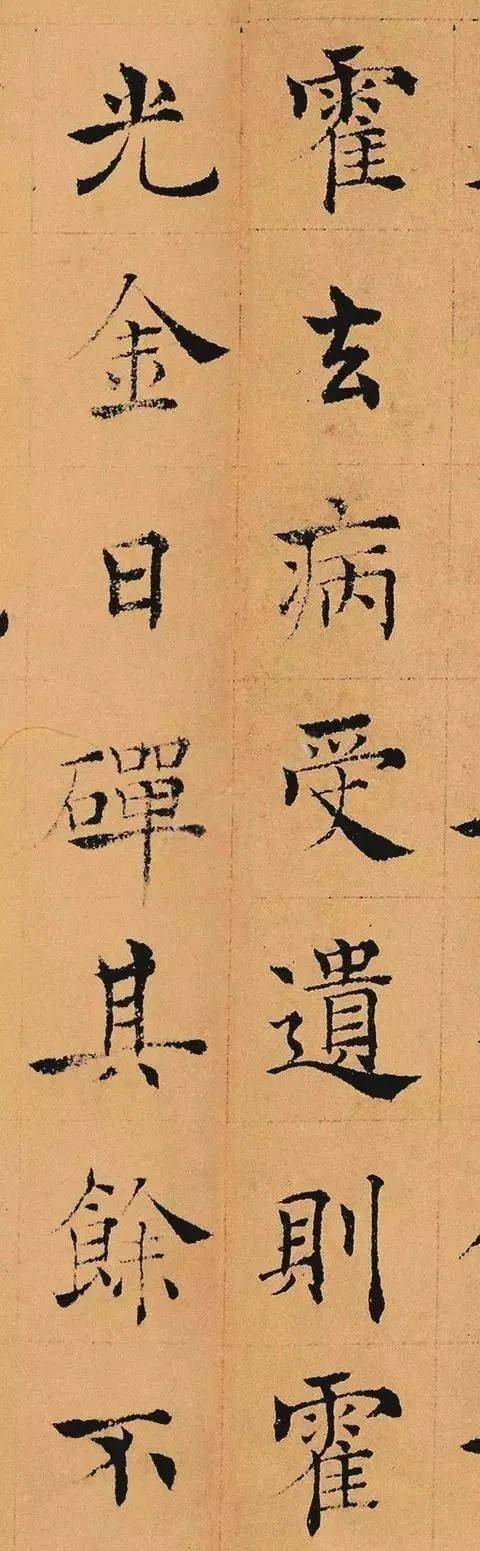 霍去病受遺則霍
光金日磾其餘不